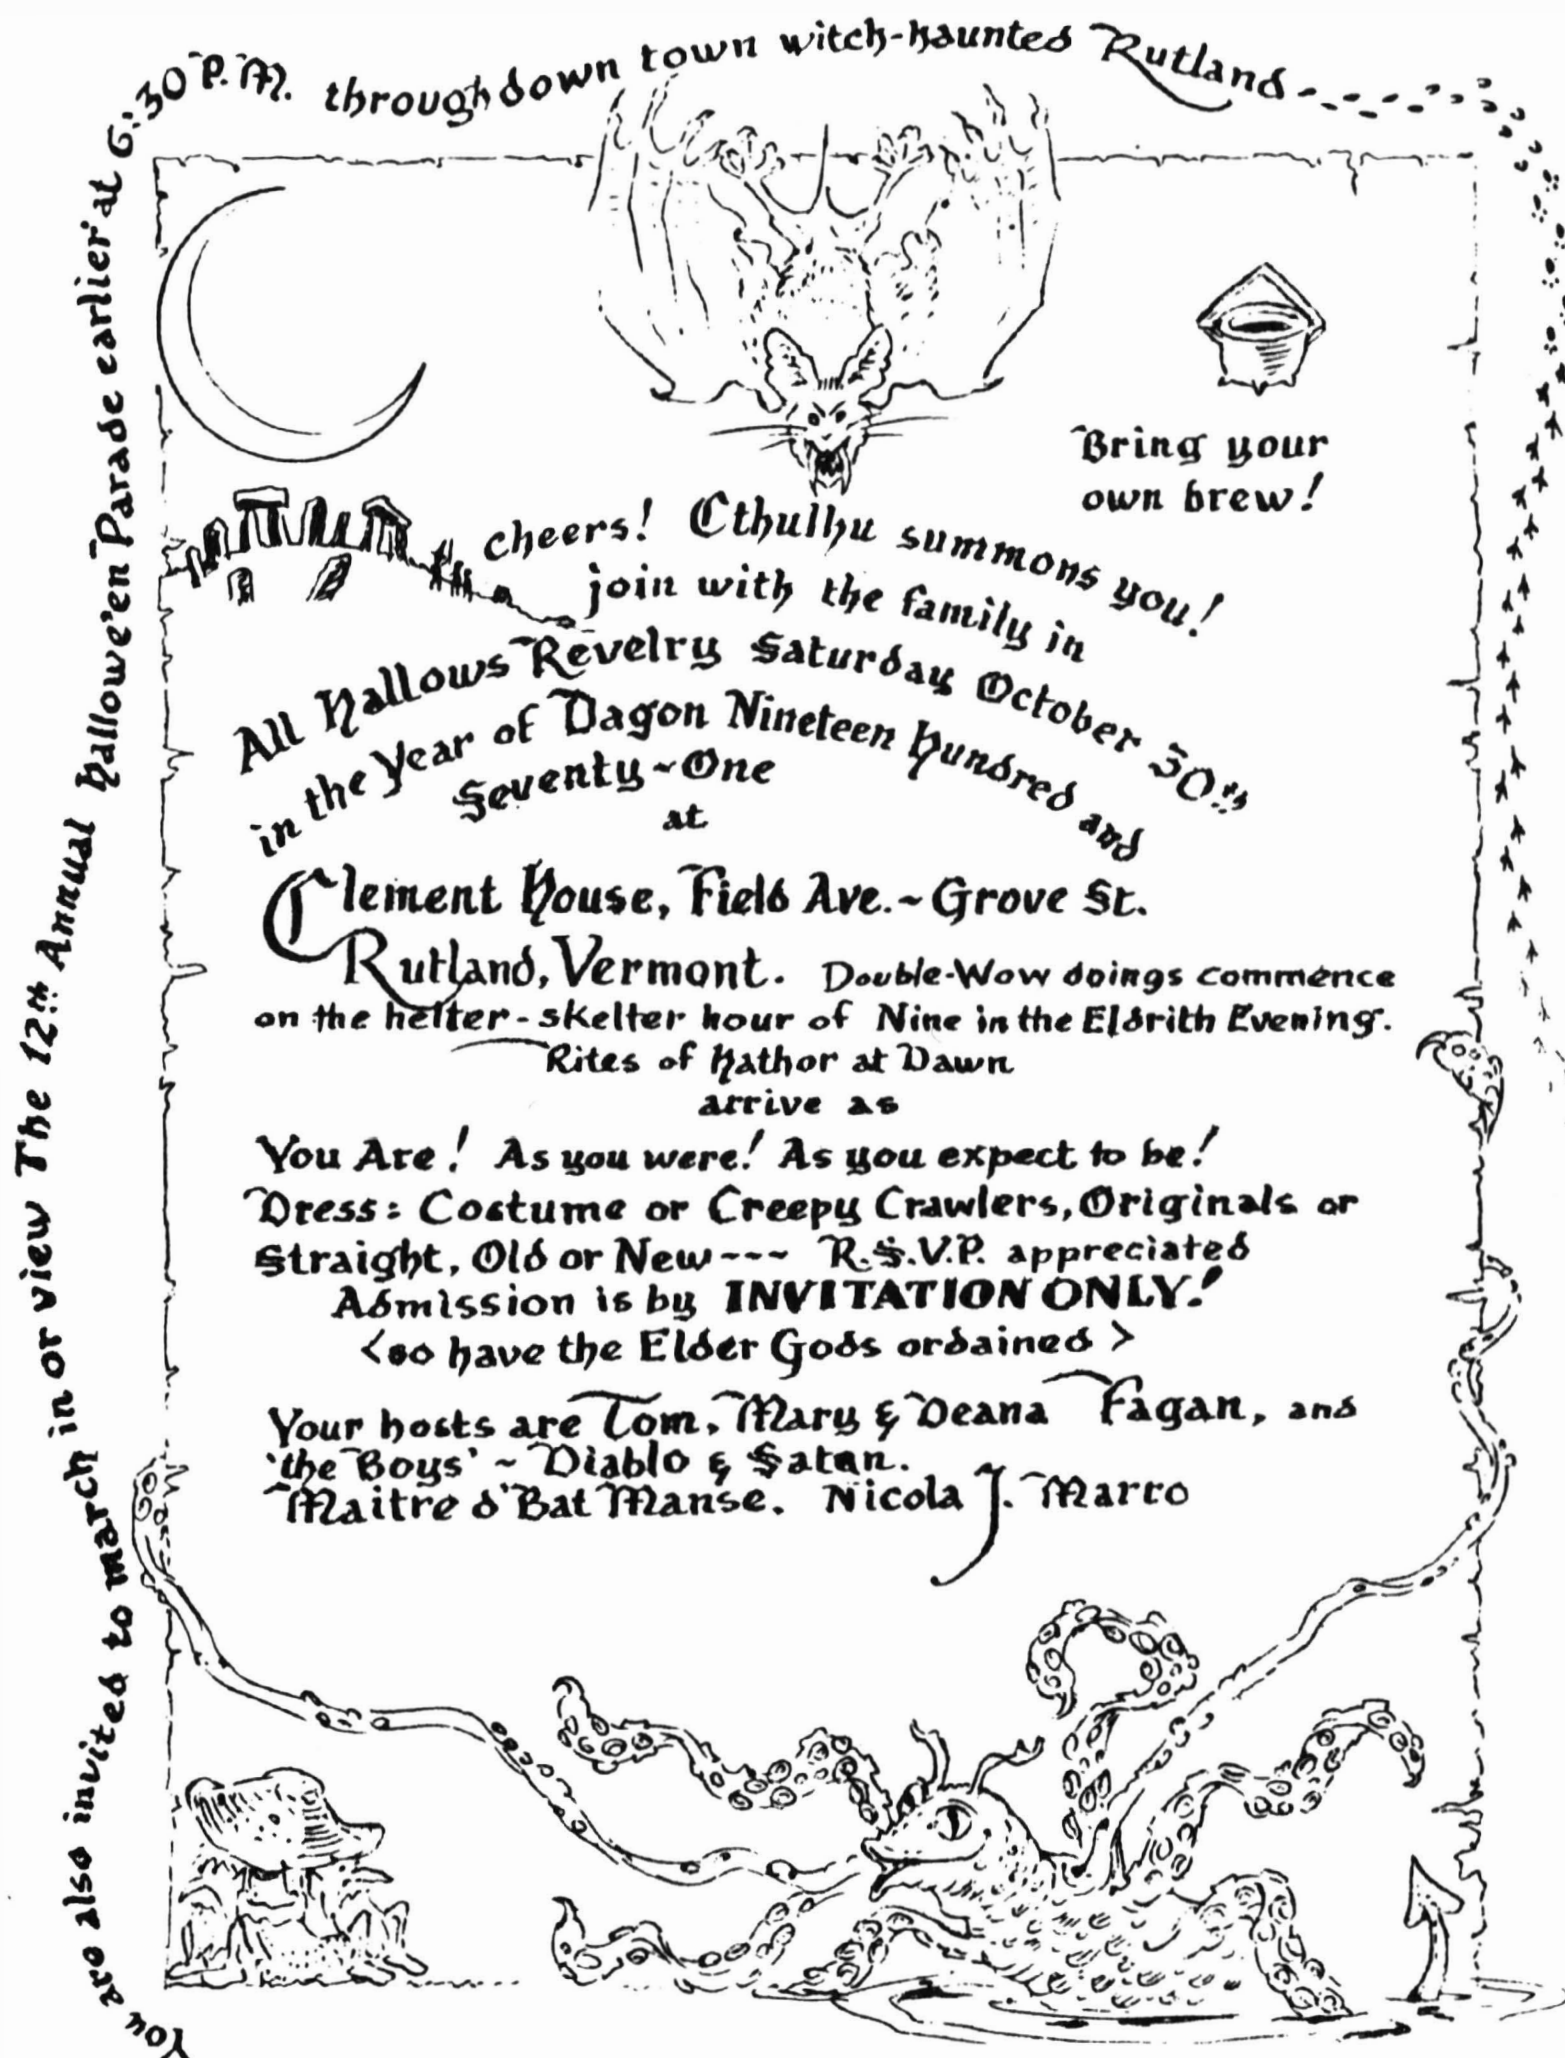 You are also invited to march in or view The 12th Annual Hallowe'en Parade earlier at 6:30 P.M. through down town witch-haunted Rutland
Bring your
own brew!
cheers! Cthulhu summons you!
join with the family in
All Hallows Revelry Saturday October 30th
in the Year of Dagon Nineteen Hundred and
Seventy~One
at
Clement House, Field Ave.~Grove St.
Rutland, Vermont. Double-Wow doings commence
on the helter-skelter hour of Nine in the Eldrith Evening.
Rites of Hathor at Dawn
arrive as
You Are! As you were! As you expect to be!
Dress: Costume or Creepy Crawlers, Originals or
Straight, Old or New--- R.S.V.P. appreciated
Admission is by INVITATION ONLY!
<so have the Elder Gods ordained>
Your hosts are Tom, Mary & Deana Fagan, and
'the Boys' ~ Diablo & Satan.
Maitre d'Bat Manse. Nicola J. Marro